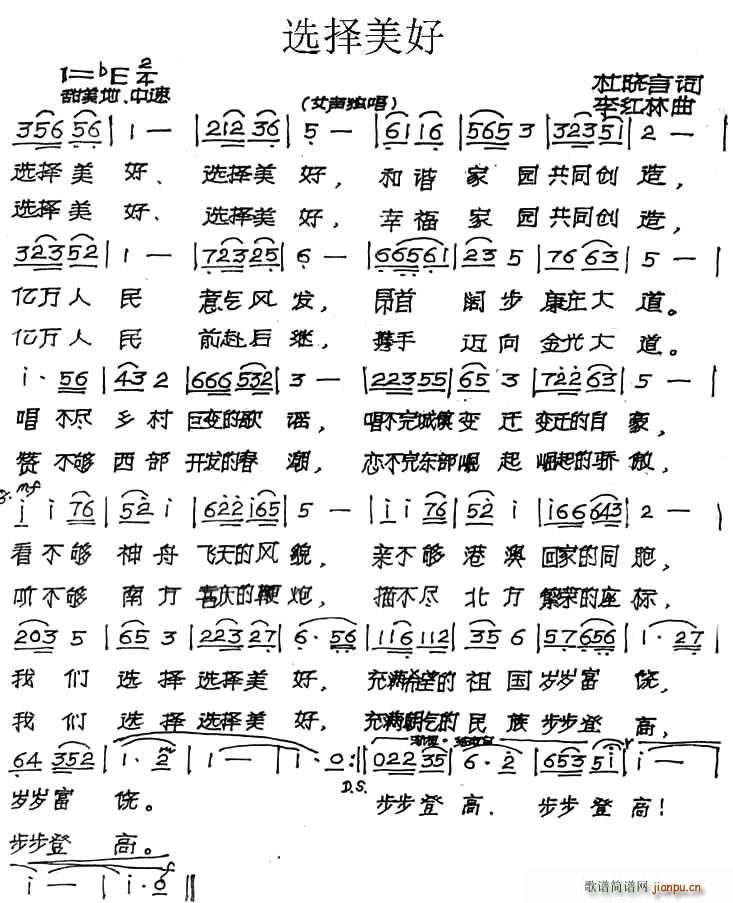 选择美好
1=♭E 2/4
杜晓言词
甜美地、中速
(女声独唱)
李红林曲
356 56 | 1 — | 212 36 | 5 — | 61 16 | 565 3 | 323 51 | 2 — |
选择美 好、 选择美 好, 和谐 家 园共同创 造,
选择美 好、 选择美 好, 幸福 家 园共同创 造,
323 52 | 1 — | 723 25 | 6 — | 66561 | 23 5 | 76 63 | 5 — |
亿万人 民 意气风 发, 昂首 阔 步 康庄大 道。
亿万人 民 前赴后 继, 携手 迈 向 金光大 道。
i· 56 | 43 2 | 666 532 | 3 — | 223 55 | 65 3 | 722 63 | 5 — |
唱 不尽 乡 村 巨变的歌 谣, 唱不完城镇变 迁 变迁的自 豪,
赞 不够 西 部 开发的春 潮, 恋不完东部崛 起 崛起的骄 傲,
mf
i i 76 | 52 i | 622 i65 | 5 — | i i 76 | 52 i | i66 643 | 2 — |
看不够 神 舟 飞天的风 貌, 亲不够 港 澳 回家的同 胞,
听不够 南 方 喜庆的鞭 炮, 描不尽 北 方 繁荣的座 标,
203 5 | 65 3 | 223 27 | 6· 56 | 116 112 | 35 6 | 57 656 | 1· 27 |
我 们 选 择 选择美 好, 充满希望的 祖 国 岁岁富 饶,
我 们 选 择 选择美 好, 充满朝气的 民 族 步步登 高,
64 352 | 1· 2 | 1 — | i· 0 :|| 022 35 | 6· 2 | 653 5i | i — |
D.S.
岁岁富 饶。 步步登 高. 步步登 高!
步步登 高。
i — | i· 0 ||
歌谱简谱网 jianpu.cn